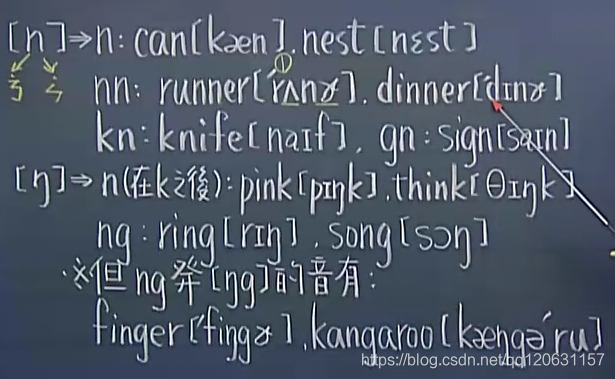 [n]⇒n: can[kæn].nest[nɛst]
①
ㄋ ㄣ nn: runner[ˊrʌnɚ].dinner[ˊdɪnɚ]
kn:knife[naɪf], gn:sign[saɪn]
[ŋ]⇒n(在k之後):pink[pɪŋk].think[θɪŋk]
ng:ring[rɪŋ].song[sɔŋ]
※但ng發[ŋg]的音有:
finger[ˊfiŋgɚ].kangaroo[kæŋgəˊru]
https://blog.csdn.net/qq120631157